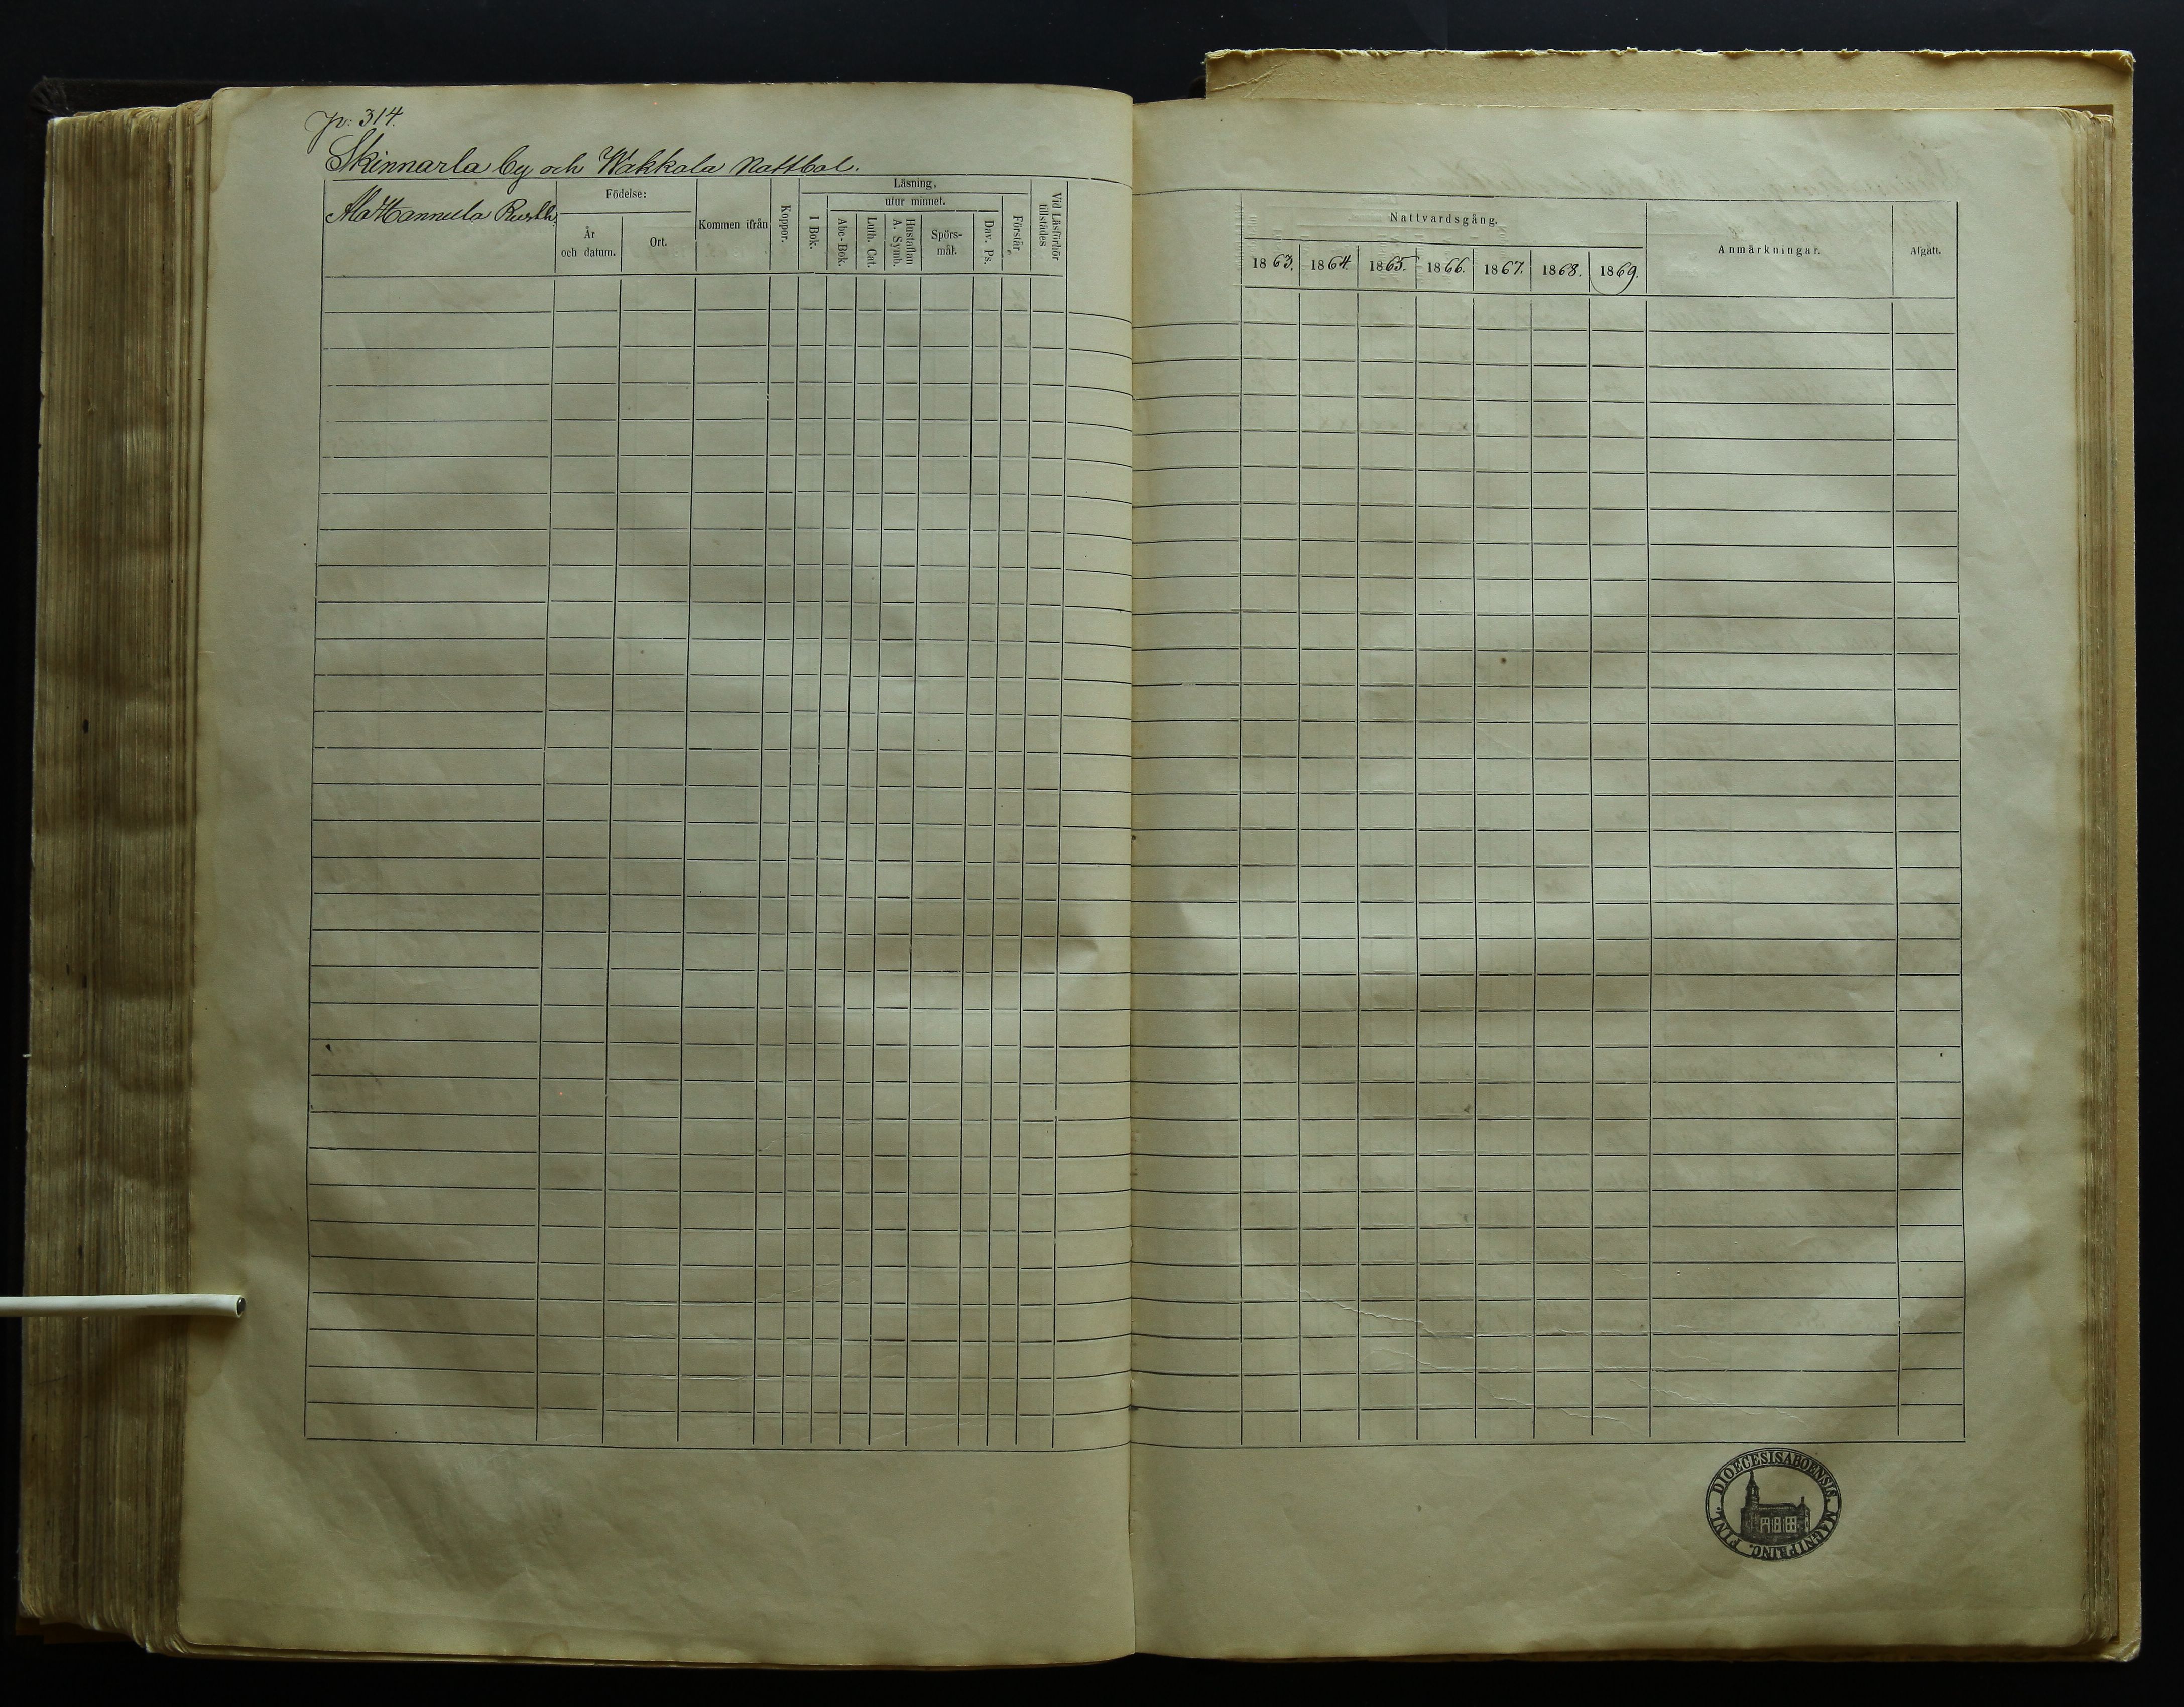 p: 314.
Skinnarla by och Wakkola Nattbol.
Ala Hannula Rusth.
Födelse:
År
och datum.
Ort.
Kommen ifrån
Koppor.
Läsning,
utur minnet.
I Bok.
Abc-Bok.
Luth. Cat.
Hustaflan
A. Symb.
Spörs-
mål.
Dav. Ps.
Förstår.
Vid Läsförhör
tillstädes
Nattvardsgång.
1863. 1864. 1865. 1866. 1867. 1868. 1869.
Anmärkningar.
Afgått.
DIOECESIS ABOENSIS. MAGNI PRINC. FINL.